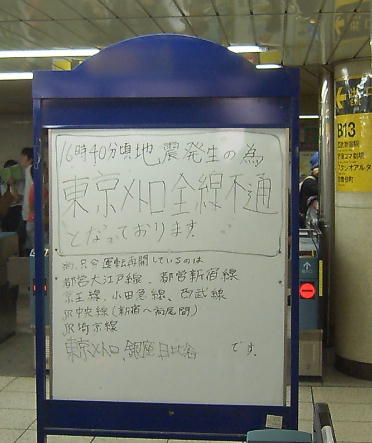 16時40分頃地震発生の為
東京メトロ全線不通
となっております。
尚、只今運転再開しているのは
都営大江戸線、都営新宿線
京王線、小田急線、西武線
JR中央線(新宿〜高尾間)
JR埼京線
東京メトロ、銀座 日比谷 です。
B13
西武新宿駅
スタジオアルタ